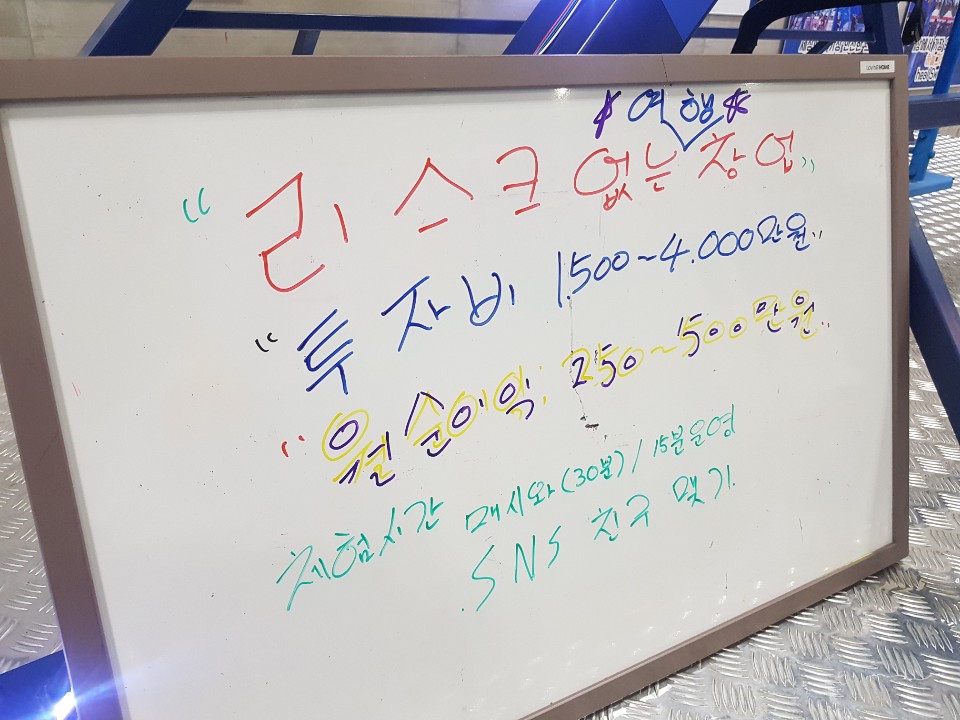 *여행*
"리스크 없는 창업"
"투자비 1.500~4.000만원"
"월 순이익: 250~500만원"
체험시간 매시와(30분)/15분운영
.SNS 친구 맺기.